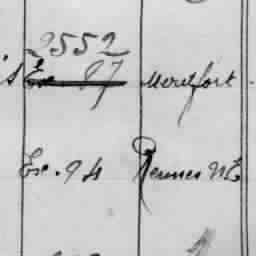 2552
Ex 87 Merlfort.
Ex. 94 Rennes NE